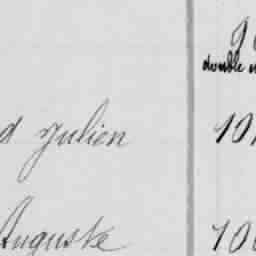 double
d Julien 10
Auguste 10